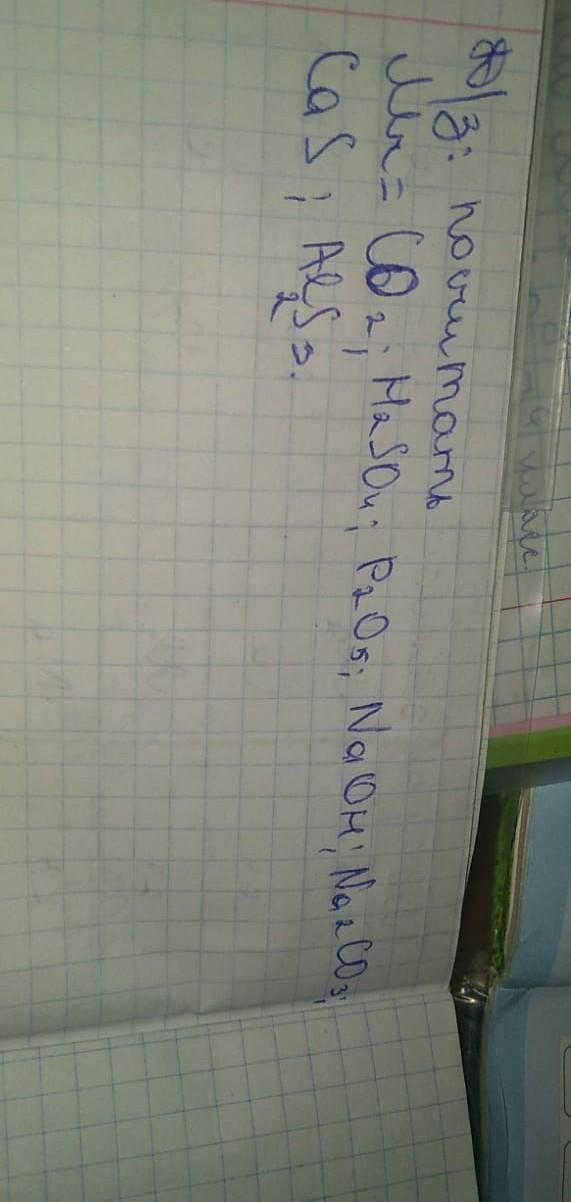 Д/з: посчитать
Mr = CO2; H2SO4; P2O5; NaOH; Na2CO3;
CaS; Al2S3.